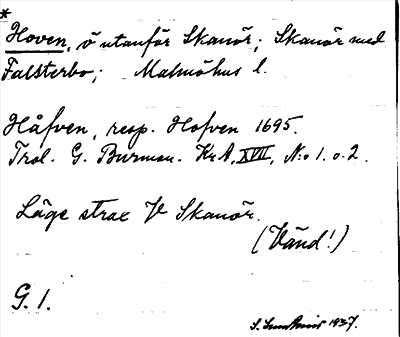 *
Hoven, ö utanför Skanör; Skanör med
Falsterbo; Malmöhus l.
Håfven, resp. Hofven 1695.
Trol. G. Burman. KrA, XVII, N:o 1. o. 2.
Läge strax V Skanör.
(Vänd!)
G. 1.
S. 1937.